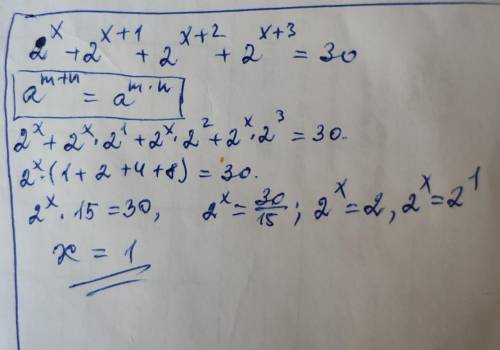 2^x + 2^{x+1} + 2^{x+2} + 2^{x+3} = 30
a^{m+n} = a^{m·n}
2^x + 2^x · 2^1 + 2^x · 2^2 + 2^x · 2^3 = 30.
2^x · (1 + 2 + 4 + 8) = 30.
2^x · 15 = 30, 2^x = 30/15 ; 2^x = 2, 2^x = 2^1
x = 1